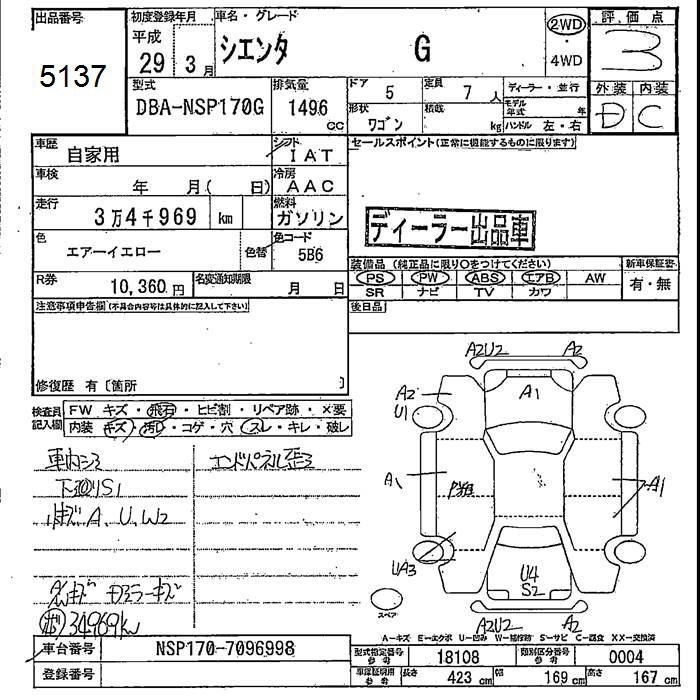 出品番号
5137
初度登録年月
平成
29 3月
車名・グレード
シエンタ G
2WD
4WD
評価点
3
外装 内装
D C
型式
DBA-NSP170G
排気量
1496
cc
ドア 5
定員 7人
ディーラー・並行
形状 ワゴン
積載 kg
モデル年式 年
ハンドル 左・右
車歴
自家用
シフト
IAT
車検
年 月( 日)
冷房
AAC
走行
3万4千969 km
燃料
ガソリン
色
エアーイエロー
色替
色コード
5B6
R券
10,360円
名変通知期限
月 日
セールスポイント(正常に機能するものに限ります)
ディーラー出品車
装備品 (純正品に限り○をつけてください)
新車保証書
PS PW ABS エアB AW
有・無
SR ナビ TV カワ
後日品
注意事項申告欄(不具合内容等は具体的に記入して下さい)
修復歴 有〔箇所 〕
検査員
記入欄
FW キズ・飛石・ヒビ割・リペア跡・×要
内装 キズ・汚れ・コゲ・穴・スレ・キレ・破レ
下廻りS1
小キズA、U、W2
エンドパネル歪
34969km
A2U2 A2
A2
U1
A1
A1
A1
UA3
U4
S2
スペア
A2U2 A2
A-キズ E-エクボ U-凹み W-補修跡 S-サビ C-腐食 XX-交換済
車台番号 NSP170-7096998
登録番号
型式指定番号
参考
18108
類別区分番号
参考
0004
車庫証明用
参考
長さ 423 cm
幅 169 cm
高さ 167 cm